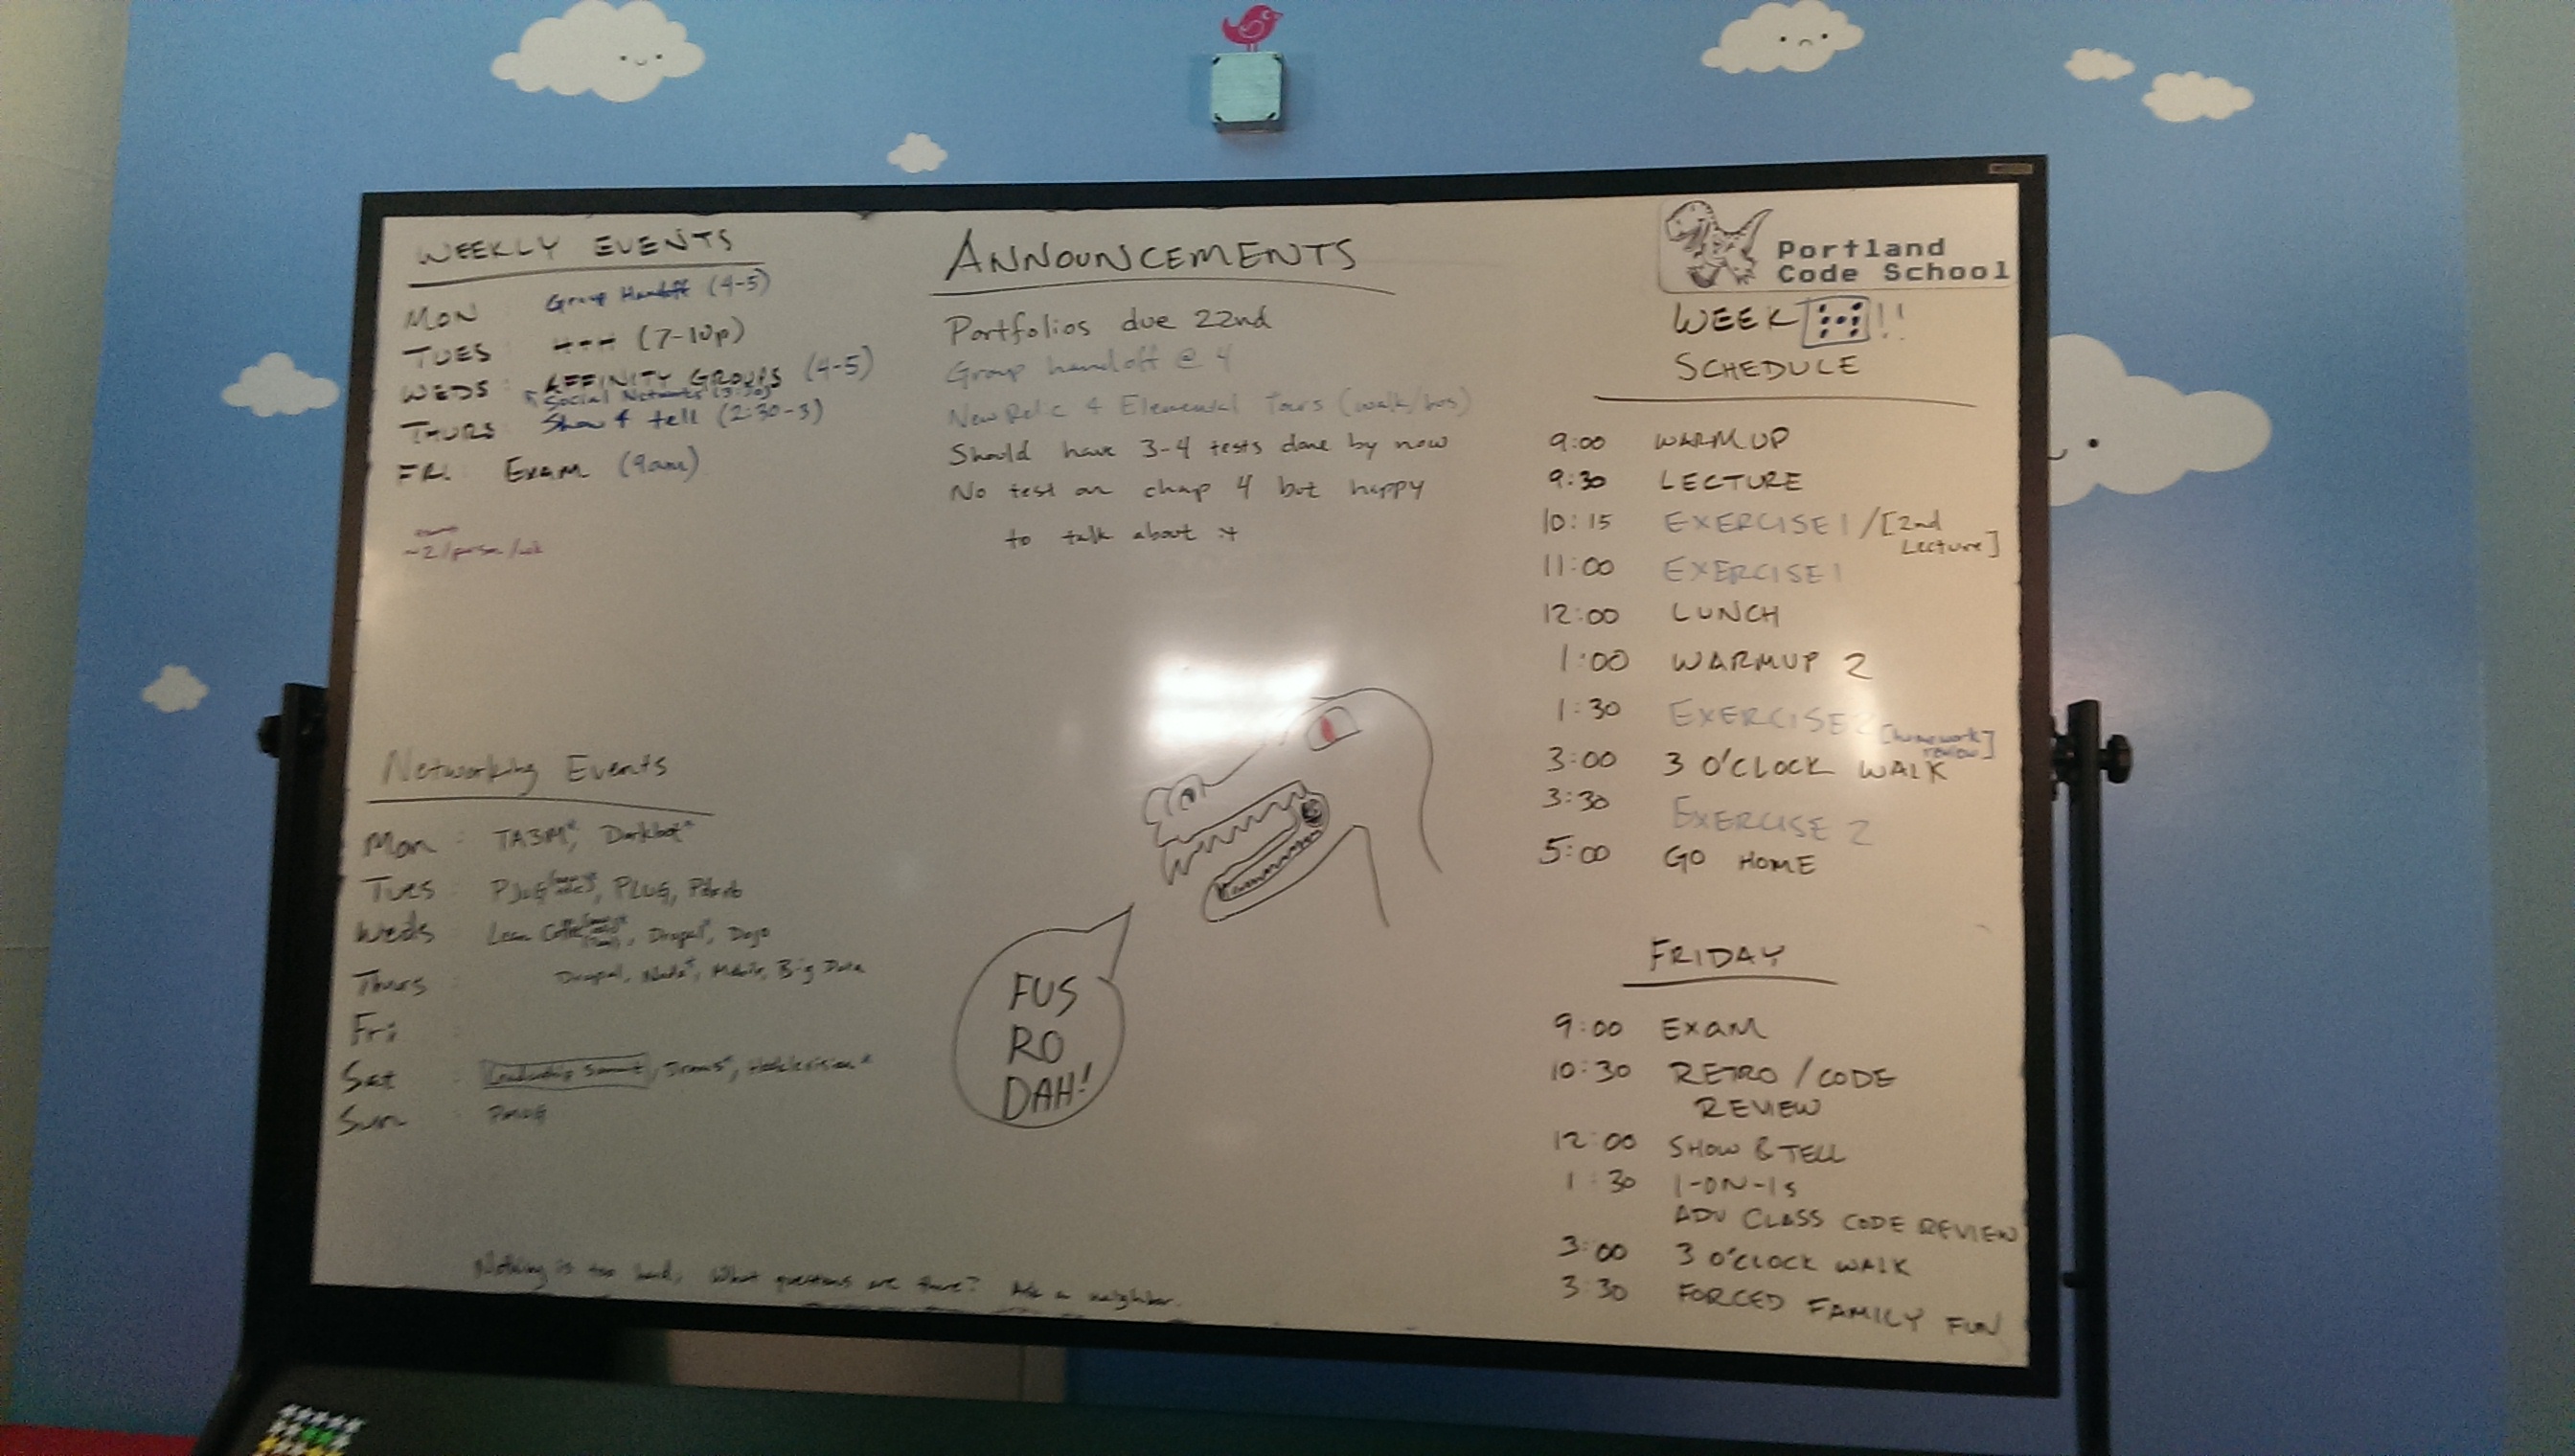 WEEKLY EVENTS
MON Group Handoff (4-5)
TUES (7-10p)
WEDS: AFFINITY GROUPS (4-5)
Social Networks (3:30)
THURS Show & tell (2:30-3)
FRI. EXAM (9am)
~2/person/wk
Networking Events
Mon : TA3M*, Dorkbot*
Tues : PJUG, PLUG,
Weds : Lean Coffee, Drupal*, Dojo
Thurs : Drupal, Node*, Mobile, Big Data
Fri :
Sat :
Sun :
Nothing is too hard, What questions are there? Ask a neighbor.
ANNOUNCEMENTS
Portfolios due 22nd
Group handoff @ 4
New Relic & Elemental Tours (walk/bus)
Should have 3-4 tests done by now
No test on chap 4 but happy
to talk about it
FUS
RO
DAH!
Portland
Code School
WEEK !!
SCHEDULE
9:00 WARMUP
9:30 LECTURE
10:15 EXERCISE 1 / [2nd
Lecture]
11:00 EXERCISE 1
12:00 LUNCH
1:00 WARMUP 2
1:30 EXERCISE 2 [homework
review]
3:00 3 O'CLOCK WALK
3:30 EXERCISE 2
5:00 GO HOME
FRIDAY
9:00 EXAM
10:30 RETRO / CODE
REVIEW
12:00 SHOW & TELL
1:30 1-ON-1s
ADV CLASS CODE REVIEW
3:00 3 O'CLOCK WALK
3:30 FORCED FAMILY FUN